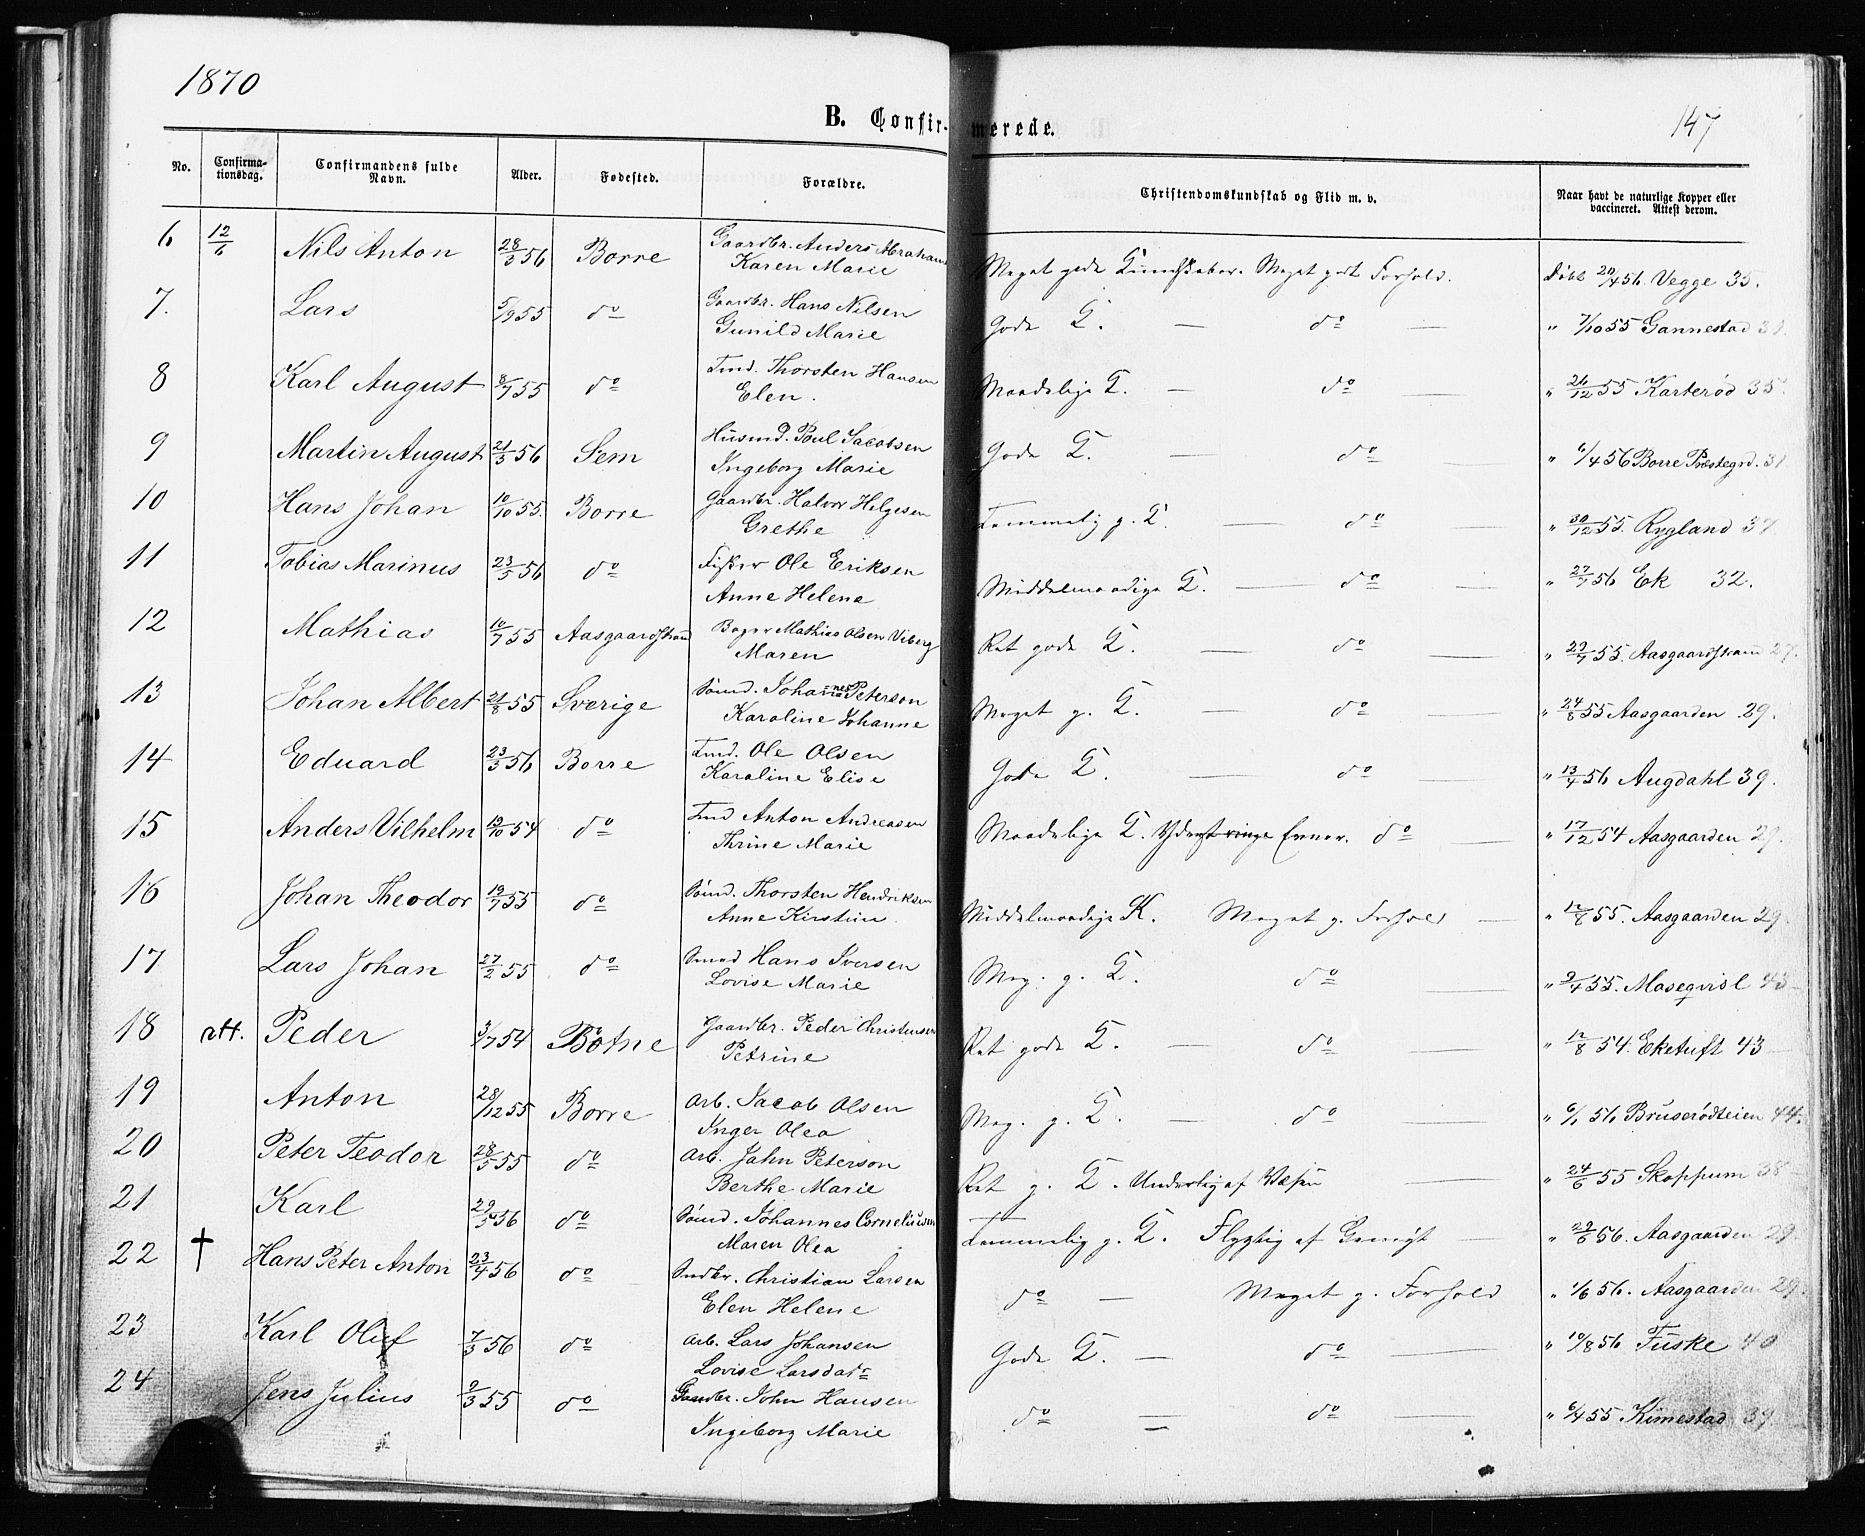 1870
147
B. Confirmerede.
No. Confirma-tionsdag. Confirmandens fulde Navn. Alder. Fødested. Forældre. Christendomskundskab og Flid m. v. Naar havt de naturlige Kopper eller vaccineret. Attest derom.
6 12/6 Nils Anton 28/3 56 Borre Gaardbr. Anders Abraham Meget gode Kundskaber. Meget godt Forhold. døbt 20/4 56. Vegge 35.
Karen Marie
7. Lars 5/9 55 do Gaardbr. Hans Nilsen Gode K. — do — " 7/10 55 Gannestad
Gunild Marie
8 Karl August 8/7 55 do Inds. Thorsten Hansen Maadelige K. — do — " 26/12 55 Karterød 35.
Elen.
9 Martin August 21/3 56 Sem Husmd. Poul Jacobsen Gode K. — do — " 6/4 56 Borre Præstegrd. 31
Ingeborg Marie
10 Hans Johan 10/10 55. Borre Gaardbr. Halvor Helgesen Temmelig g. K. — do — " 30/12 55. Rygland 37
Grethe
11 Tobias Marinus 23/5 56 do Fisker Ole Eriksen Middelmaadige K. — do — " 27/7 56 Ek 32.
Anne Helena
12 Mathias 10/7 55 Aasgaardstrand Bager Mathias Olsen Viberg Ret gode K. — do — " 29/7 55. Aasgaardstrand 27.
Maren
13 Johan Albert 21/8 55 Sverige Sømd. Johannes Peterson Meget g. K. — do — " 24/8 55 Aasgaarden 29.
Karoline Johanne
14 Eduard 23/3 56 Borre Inds. Ole Olsen Gode K. — do — " 13/4 56 Augdahl 39.
Karoline Elise
15 Anders Vilhelm 19/10 54 do Inds Anton Andreasen Maadelige K. Yderst ringe Evner. do — " 17/12 54 Aasgaarden 29.
Thrine Marie
16 Johan Theodor 19/7 55 do Sømd. Thorsten Hendriksen Middelmaadige K. Meget g. Forhold — " 12/8 55. Aasgaarden 29.
Anne Kirstine
17 Lars Johan 27/2 55 do Smed Hans Iversen Meg. g. K. do — " 9/4 55. 43
Lovise Marie
18 att. Peder 3/7 54 Botne Gaardbr. Peder Christensen Ret gode K. — do — " 12/8 54. Eketuft 43
Petrine
19 Anton 28/12 55 Borre Arb. Jacob Olsen Meg. g. K. — do — " 6/1 56 Bruserødteien 44.
Inger Olea
20 Peter Teodor 28/5 55 do Arb. John Peterson Ret g. K. Underlig af Væsen — " 24/6 55 Skoppum 38
Berthe Marie
21 Karl 29/5 56 do Sømd. Johannes Corneliusen Temmelig g. K. Flygtig af Gemyt — " 29/6 56. Aasgaarden 29.
Maren Olea
22 † Hans Peter Anton 23/4 56 do Christian Larsen do — Meget g. Forhold " 1/6 56. Aasgaarden 29.
Elen Helene
23 Karl Oluf 7/3 56 do Arb. Lars Johansen Gode K. — do — " 10/8 56 Fuske 40
Lovise Larsdatr
24 Jens Julius 9/3 55 do Gaardbr. John Hansen do — do — " 6/4 55 Kimestad 39.
Ingeborg Marie